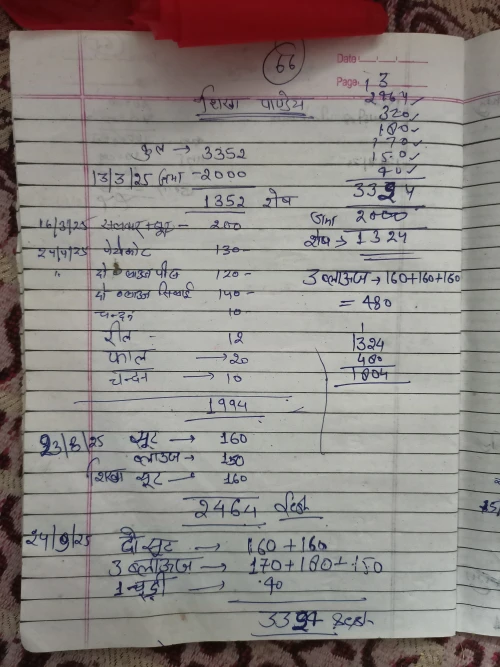 66
Date
Page 13
शिखा पाण्डेय
कुल → 3352
13/3/25 जमा -2000
1352 शेष
16/3/25 सलवार + सूट - 200
24/4/25 पेटीकोट 130-
〃 दो ब्लाउज पीस 120-
दो ब्लाउज सिलाई 140-
चन्दन 10
रील - 12
फाल → 20
चन्दन → 10
1994
23/8/25 सूट → 160
ब्लाउज → 150
शिखा सूट → 160
2464
24/9/25 दो सूट → 160+160
3 ब्लाऊज → 170+180+150
1 चुन्नी → 40
3324
2464
320
180
170
150
40
3324
जमा 2000
शेष → 1324
3 ब्लाऊज → 160+160+160
= 480
1
1324
480
1804